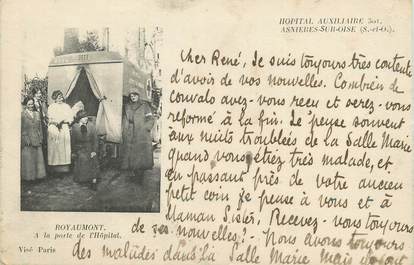 HOPITAL AUXILIAIRE 301,
ASNIERES-SUR-OISE (S.-et-O.).
Cher René, Je suis toujours très content
d'avoir de vos nouvelles. Combien de
convalo avez-vous reçu et serez-vous
reformé à la fin. Je pense souvent
aux nuits troublées de la Salle Marie
quand vous étiez très malade, et
en passant près de votre ancien
petit coin je pense à vous et à
Maman Sister, Recevez-vous toujours
de ses nouvelles? - Nous avons toujours
des malades dans la Salle Marie Mais
ROYAUMONT.
A la porte de l'Hôpital.
Visé Paris